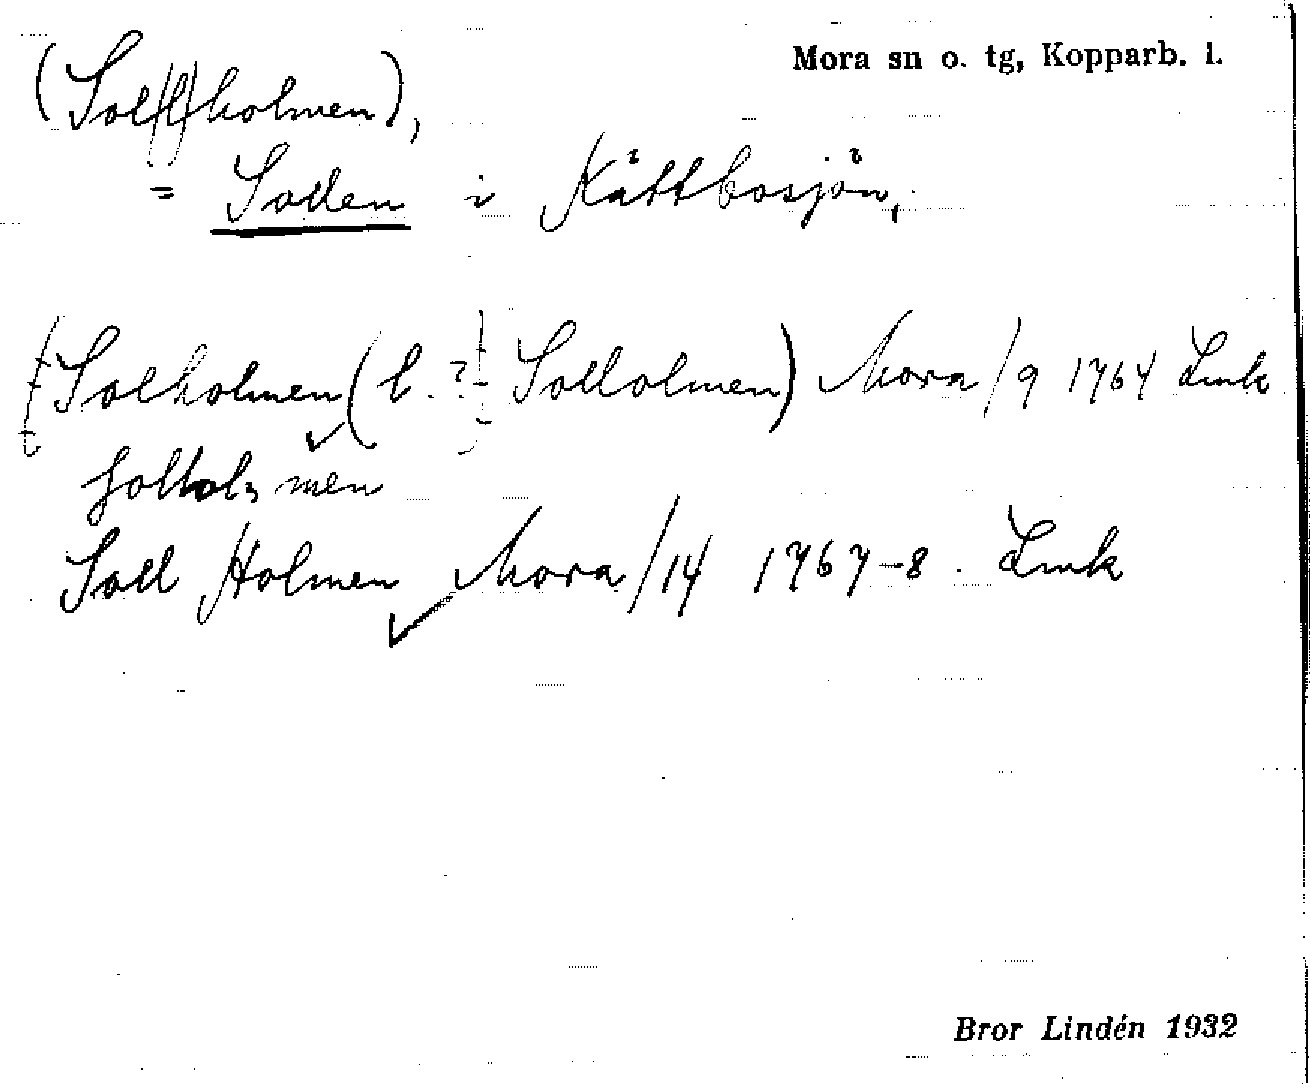 Mora sn o. tg, Kopparb. l.
(Sol(l)holmen),
= Sollen i Kättbosjön,
(Solholmen (l. ?) Sollolmen) Mora/9 1764 Lmk
Sollholmen
Soll Holmen Mora/14 1767-8. Lmk
Bror Lindén 1932